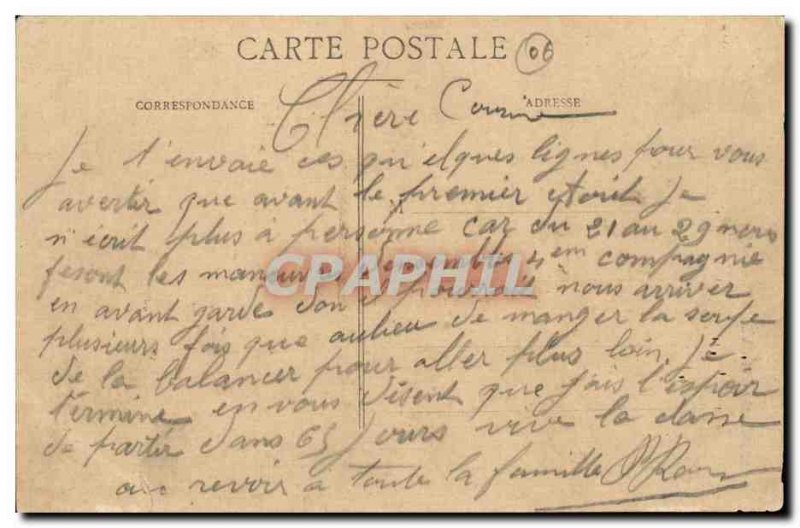 CARTE POSTALE
06
CORRESPONDANCE
ADRESSE
Chère Cousine
Je t'envoie ces quelques lignes pour vous
avertir que avant le premier Je
n'écrit plus à personne car du 21 au 29 nous
fesont les manœuvres 4em compagnie
en avant garde pourrait nous arriver
plusieurs fois que aulieu de manger la soupe
de la balancer pour aller plus loin. Je
termine en vous disent que j'ais l'espoir
de partir dans 65 Jours vive la classe
au revoir a toute la famille
CPAPHIL